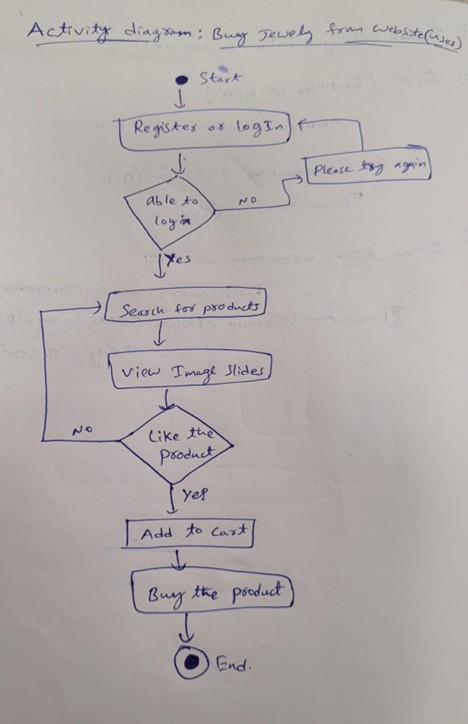 Activity diagram: Buy Jewely from website (user)
Start
Register or logIn
Please try again
able to
login
NO
Yes
Search for products
View Image Slides
Like the
product
NO
Yes
Add to cart
Buy the product
End.